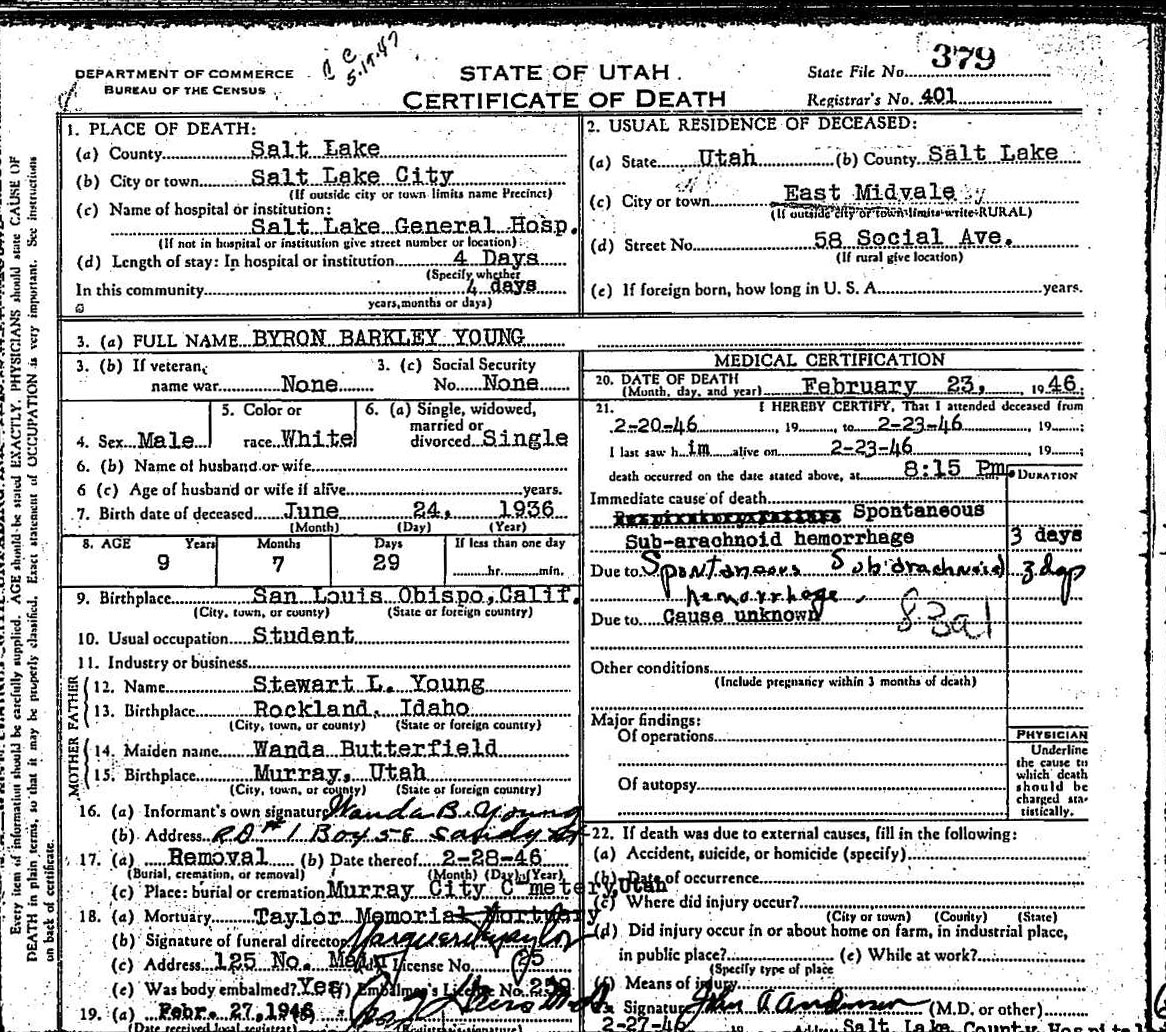 379
C C
5.19.47
DEPARTMENT OF COMMERCE
BUREAU OF THE CENSUS
STATE OF UTAH
CERTIFICATE OF DEATH
State File No.
Registrar's No. 401
Every item of information should be carefully supplied. AGE should be stated EXACTLY. PHYSICIANS should state CAUSE OF
DEATH in plain terms, so that it may be properly classified. Exact statement of OCCUPATION is very important. See instructions
on back of certificate.
1. PLACE OF DEATH:
(a) County Salt Lake
(b) City or town Salt Lake City
(If outside city or town limits name Precinct)
(c) Name of hospital or institution:
Salt Lake General Hosp.
(If not in hospital or institution give street number or location)
(d) Length of stay: In hospital or institution 4 Days
(Specify whether
In this community 4 days
years, months or days)
2. USUAL RESIDENCE OF DECEASED:
(a) State Utah (b) County Salt Lake
(c) City or town East Midvale
(If outside city or town limits write RURAL)
(d) Street No. 58 Social Ave.
(If rural give location)
(e) If foreign born, how long in U. S. A. years.
3. (a) FULL NAME BYRON BARKLEY YOUNG
3. (b) If veteran, 3. (c) Social Security
name war None No. None
5. Color or 6. (a) Single, widowed,
married or
4. Sex Male race White divorced Single
6. (b) Name of husband or wife
6 (c) Age of husband or wife if alive years.
7. Birth date of deceased June 24, 1936
(Month) (Day) (Year)
8. AGE Years Months Days If less than one day
9 7 29 hr. min.
9. Birthplace San Louis Obispo, Calif.
(City, town, or county) (State or foreign country)
10. Usual occupation Student
11. Industry or business
FATHER
12. Name Stewart L. Young
13. Birthplace Rockland, Idaho
(City, town, or county) (State or foreign country)
MOTHER
14. Maiden name Wanda Butterfield
15. Birthplace Murray, Utah
(City, town, or county) (State or foreign country)
16. (a) Informant's own signature Wanda B. Young
(b) Address RD #1 Box 58 Sandy Ut
17. (a) Removal (b) Date thereof 2-28-46
(Burial, cremation, or removal) (Month) (Day) (Year)
(c) Place: burial or cremation Murray City C metery, Utah
18. (a) Mortuary Taylor Memorial Mortuary
(b) Signature of funeral director
(c) Address 125 No. Main License No. 25
(e) Was body embalmed? Yes (f) Embalmer's License No. 259
19. (a) Febr. 27, 1946
(Date received local registrar) (Registrar's signature)
MEDICAL CERTIFICATION
20. DATE OF DEATH
(Month, day, and year) February 23, 19 46
21. I HEREBY CERTIFY, That I attended deceased from
2-20-46, 19 , to 2-23-46, 19 ;
I last saw h im alive on 2-23-46, 19 ;
death occurred on the date stated above, at 8:15 Pm. DURATION
Immediate cause of death
Spontaneous
Sub-arachnoid hemorrhage 3 days
Due to Spontaneous Subdrachnoid
hemorrhage.
Due to Cause unknown
Other conditions
(Include pregnancy within 3 months of death)
Major findings:
Of operations
Of autopsy
PHYSICIAN
Underline
the cause to
which death
should be
charged sta-
tistically.
22. If death was due to external causes, fill in the following:
(a) Accident, suicide, or homicide (specify)
(b) Date of occurrence
(c) Where did injury occur?
(City or town) (County) (State)
(d) Did injury occur in or about home on farm, in industrial place,
in public place? (e) While at work?
(Specify type of place
(f) Means of injury
Signature John A Anderson (M.D. or other)
2-27-46 19 Address Salt Lake County Hospital